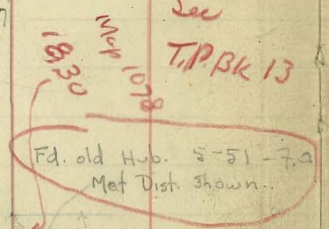 See
T.P. BK 13
Map 1078
18,30
Fd. old Hub. 5-51-7.2
Met Dist. Shown..